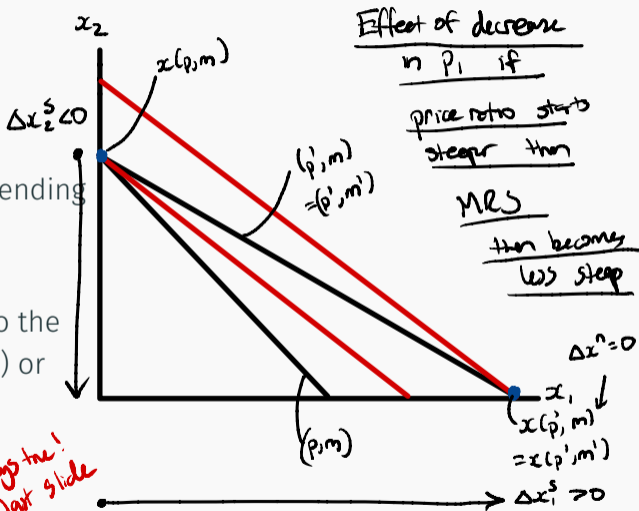 x₂
x(p,m)
Effect of decrease
in p₁ if
price ratio starts
steeper than
MRS
then becomes
less steep
Δx₂ˢ<0
(p',m)
=(p',m')
ending
o the
) or
(p,m)
x₁
Δxⁿ=0
x(p',m)
=x(p',m')
Δx₁ˢ>0
ys true!
slide